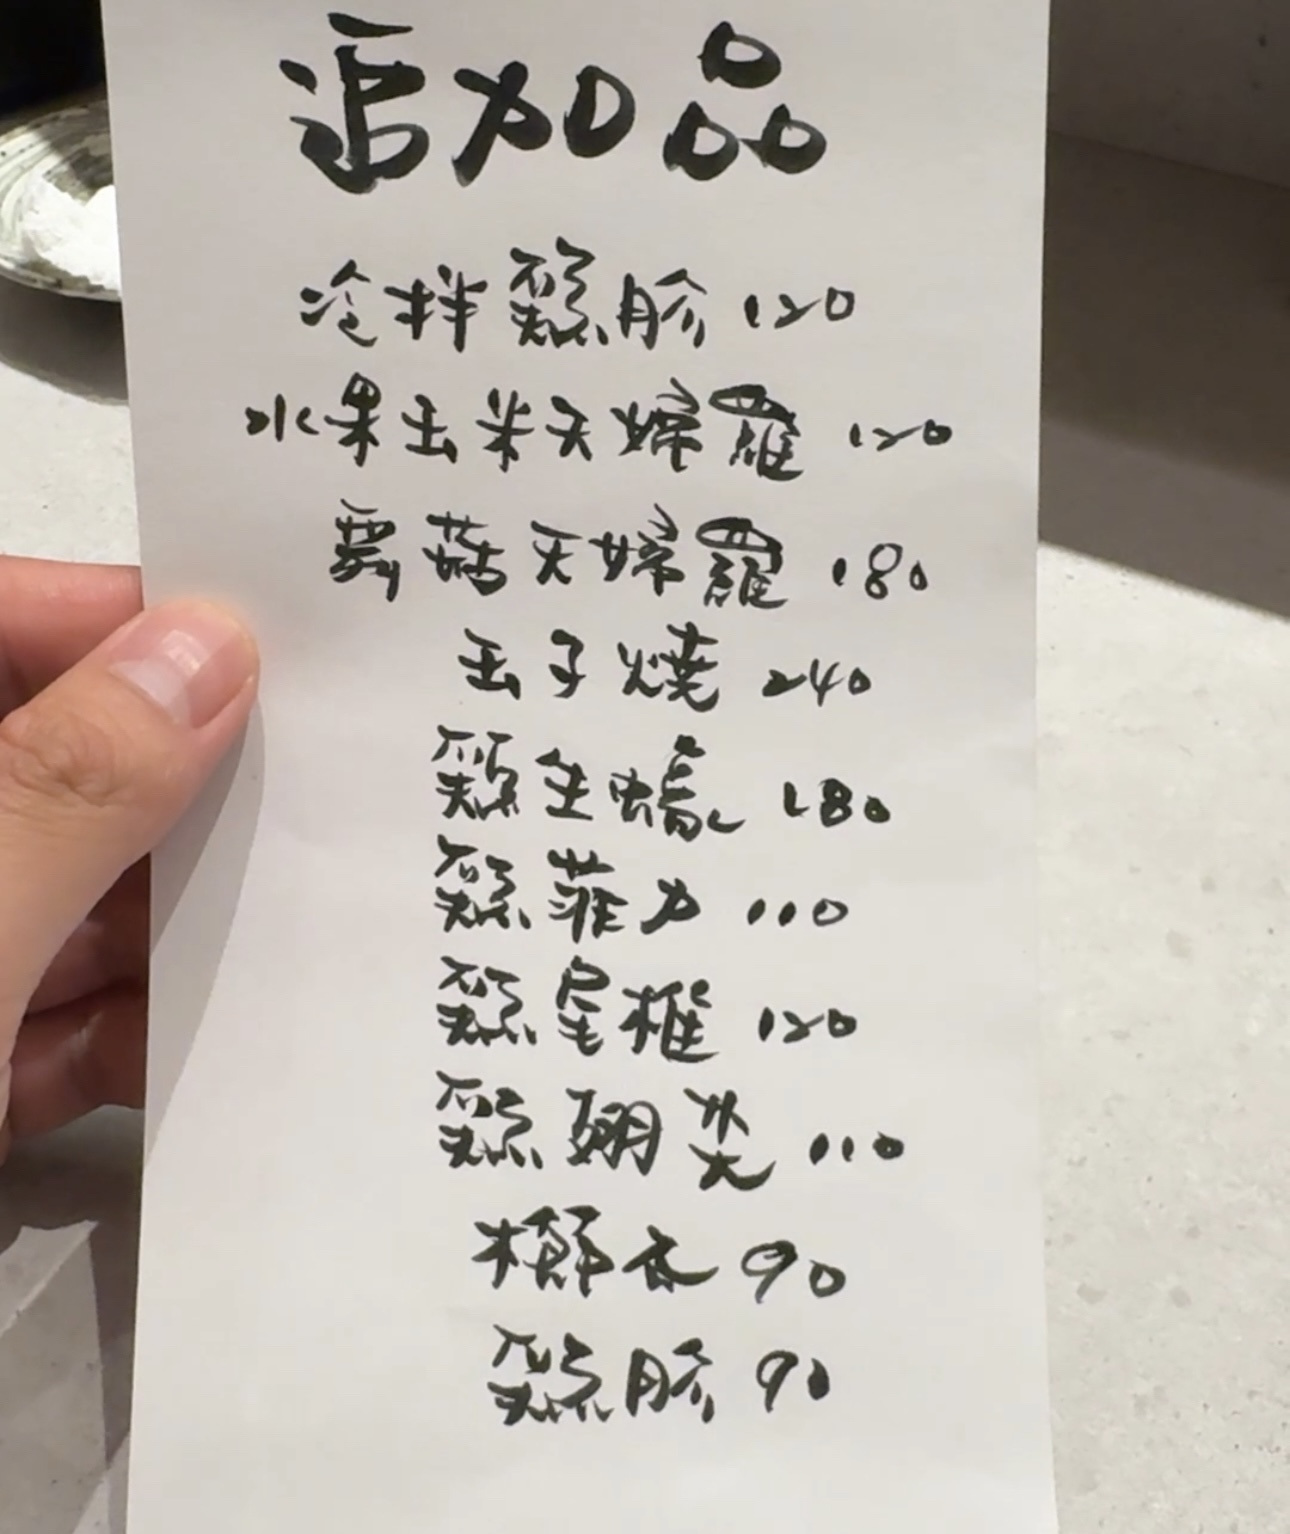 追加品
冷拌雞胗 120
水果玉米天婦羅 120
舞菇天婦羅 180
玉子燒 240
雞生蠔 180
雞菲力 110
雞尾椎 120
雞翅尖 110
櫛瓜 90
雞胗 90